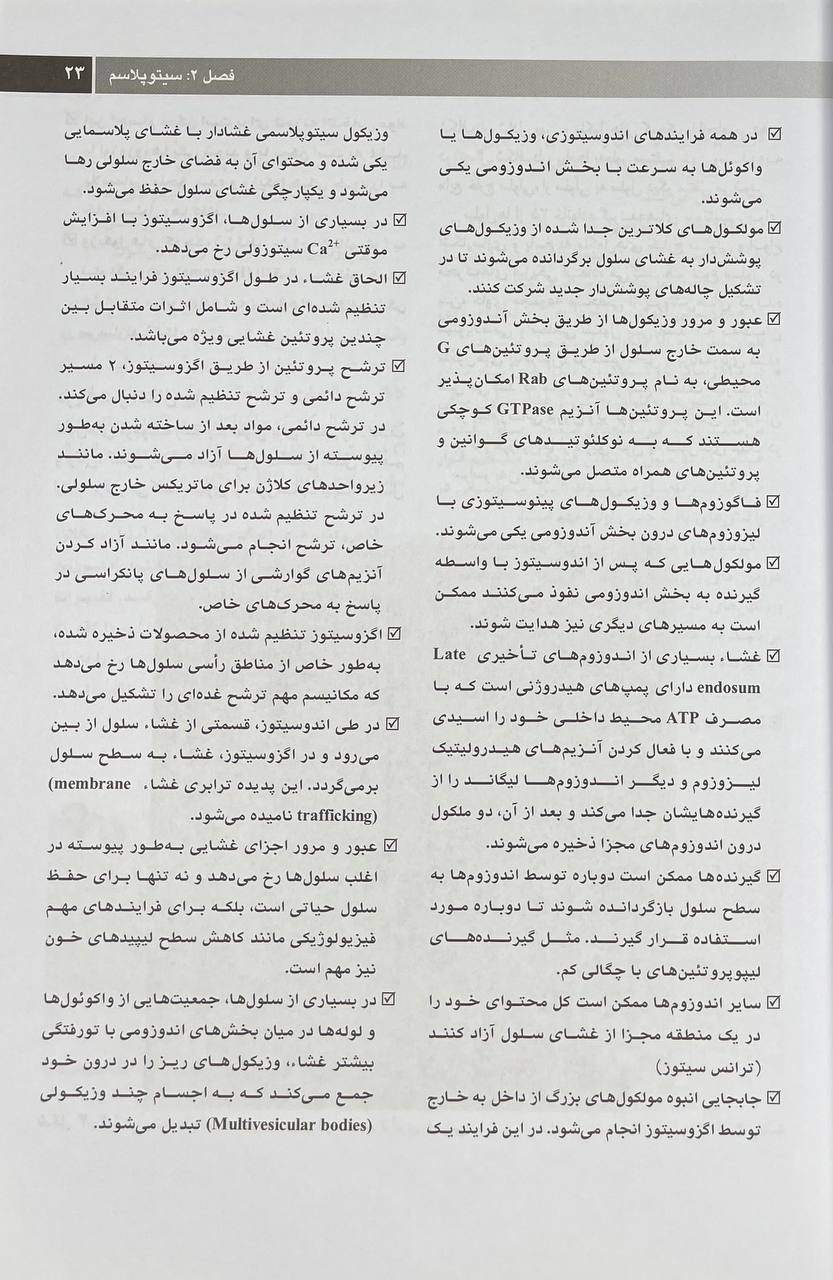 فصل ۲: سیتوپلاسم ۲۳
☑ در همه فرایندهای اندوسیتوزی، وزیکول‌ها یا
واکوئل‌ها به سرعت با بخش اندوزومی یکی
می‌شوند.
☑ مولکول‌های کلاترین جدا شده از وزیکول‌های
پوشش‌دار به غشای سلول برگردانده می‌شوند تا در
تشکیل چاله‌های پوشش‌دار جدید شرکت کنند.
☑ عبور و مرور وزیکول‌ها از طریق بخش آندوزومی
به سمت خارج سلول از طریق پروتئین‌های G
محیطی، به نام پروتئین‌های Rab امکان‌پذیر
است. این پروتئین‌ها آنزیم GTPase کوچکی
هستند که به نوکلئوتیدهای گوانین و
پروتئین‌های همراه متصل می‌شوند.
☑ فاگوزوم‌ها و وزیکول‌های پینوسیتوزی با
لیزوزوم‌های درون بخش آندوزومی یکی می‌شوند.
☑ مولکول‌هایی که پس از اندوسیتوز با واسطه
گیرنده به بخش اندوزومی نفوذ می‌کنند ممکن
است به مسیرهای دیگری نیز هدایت شوند.
☑ غشاء بسیاری از اندوزوم‌های تأخیری Late
endosum دارای پمپ‌های هیدروژنی است که با
مصرف ATP محیط داخلی خود را اسیدی
می‌کنند و با فعال کردن آنزیم‌های هیدرولیتیک
لیزوزوم و دیگر اندوزوم‌ها لیگاند را از
گیرنده‌هایشان جدا می‌کند و بعد از آن، دو ملکول
درون اندوزوم‌های مجزا ذخیره می‌شوند.
☑ گیرنده‌ها ممکن است دوباره توسط اندوزوم‌ها به
سطح سلول بازگردانده شوند تا دوباره مورد
استفاده قرار گیرند. مثل گیرنده‌های
لیپوپروتئین‌های با چگالی کم.
☑ سایر اندوزوم‌ها ممکن است کل محتوای خود را
در یک منطقه مجزا از غشای سلول آزاد کنند
(ترانس سیتوز)
☑ جابجایی انبوه مولکول‌های بزرگ از داخل به خارج
توسط اگزوسیتوز انجام می‌شود. در این فرایند یک
وزیکول سیتوپلاسمی غشادار با غشای پلاسمایی
یکی شده و محتوای آن به فضای خارج سلولی رها
می‌شود و یکپارچگی غشای سلول حفظ می‌شود.
☑ در بسیاری از سلول‌ها، اگزوسیتوز با افزایش
موقتی Ca²⁺ سیتوزولی رخ می‌دهد.
☑ الحاق غشاء در طول اگزوسیتوز فرایند بسیار
تنظیم شده‌ای است و شامل اثرات متقابل بین
چندین پروتئین غشایی ویژه می‌باشد.
☑ ترشح پروتئین از طریق اگزوسیتوز، ۲ مسیر
ترشح دائمی و ترشح تنظیم شده را دنبال می‌کند.
در ترشح دائمی، مواد بعد از ساخته شدن به‌طور
پیوسته از سلول‌ها آزاد می‌شوند. مانند
زیرواحدهای کلاژن برای ماتریکس خارج سلولی.
در ترشح تنظیم شده در پاسخ به محرک‌های
خاص، ترشح انجام می‌شود. مانند آزاد کردن
آنزیم‌های گوارشی از سلول‌های پانکراسی در
پاسخ به محرک‌های خاص.
☑ اگزوسیتوز تنظیم شده از محصولات ذخیره شده،
به‌طور خاص از مناطق رأسی سلول‌ها رخ می‌دهد
که مکانیسم مهم ترشح غده‌ای را تشکیل می‌دهد.
☑ در طی اندوسیتوز، قسمتی از غشاء سلول از بین
می‌رود و در اگزوسیتوز، غشاء به سطح سلول
برمی‌گردد. این پدیده ترابری غشاء (membrane
trafficking) نامیده می‌شود.
☑ عبور و مرور اجزای غشایی به‌طور پیوسته در
اغلب سلول‌ها رخ می‌دهد و نه تنها برای حفظ
سلول حیاتی است، بلکه برای فرایندهای مهم
فیزیولوژیکی مانند کاهش سطح لیپیدهای خون
نیز مهم است.
☑ در بسیاری از سلول‌ها، جمعیت‌هایی از واکوئول‌ها
و لوله‌ها در میان بخش‌های اندوزومی با تورفتگی
بیشتر غشاء، وزیکول‌های ریز را در درون خود
جمع می‌کند که به اجسام چند وزیکولی
(Multivesicular bodies) تبدیل می‌شوند.